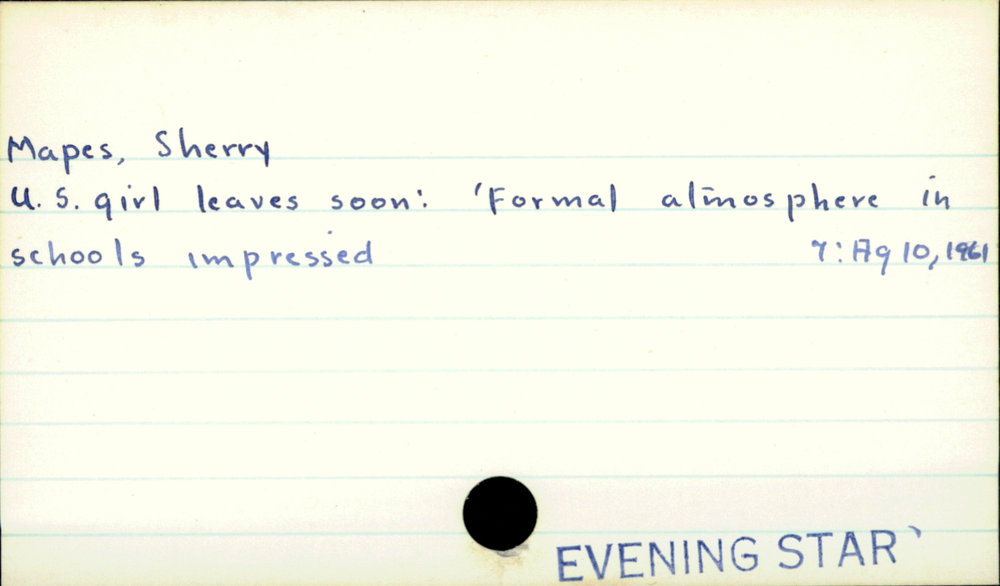 Mapes, Sherry
U.S. girl leaves soon: 'Formal atmosphere in
schools impressed 7: Ag 10, 1961
EVENING STAR